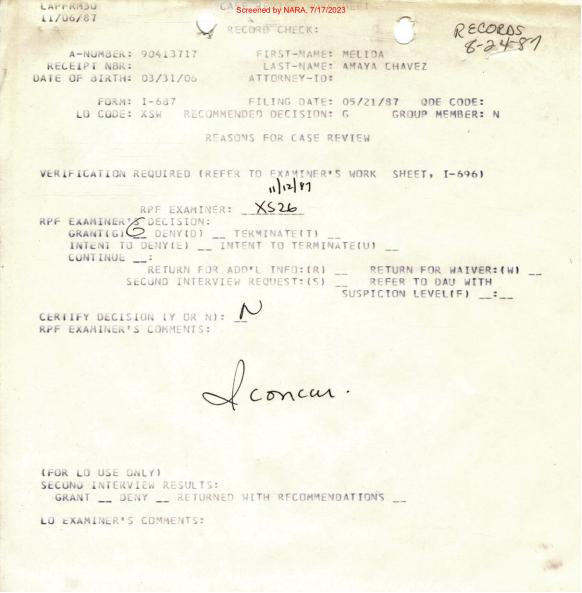 LAPFRM30
Screened by NARA, 7/17/2023
11/06/87
RECORD CHECK:
RECORDS
8-24-87
A-NUMBER: 90413717 FIRST-NAME: MELIDA
RECEIPT NBR: LAST-NAME: AMAYA CHAVEZ
DATE OF BIRTH: 03/31/06 ATTORNEY-ID:
FORM: I-687 FILING DATE: 05/21/87 QDE CODE:
LO CODE: XSW RECOMMENDED DECISION: G GROUP MEMBER: N
REASONS FOR CASE REVIEW
VERIFICATION REQUIRED (REFER TO EXAMINER'S WORK SHEET, I-696)
11/12/87
RPF EXAMINER: XS26
RPF EXAMINER'S DECISION:
GRANT(G) G DENY(D) __ TERMINATE(T) __
INTENT TO DENY(E) __ INTENT TO TERMINATE(U) __
CONTINUE __:
RETURN FOR ADD'L INFO:(R) __ RETURN FOR WAIVER:(W) __
SECOND INTERVIEW REQUEST:(S) __ REFER TO DAU WITH
SUSPICION LEVEL(F) __:__
CERTIFY DECISION (Y OR N): N
RPF EXAMINER'S COMMENTS:
I concur.
(FOR LO USE ONLY)
SECOND INTERVIEW RESULTS:
GRANT __ DENY __ RETURNED WITH RECOMMENDATIONS __
LO EXAMINER'S COMMENTS: